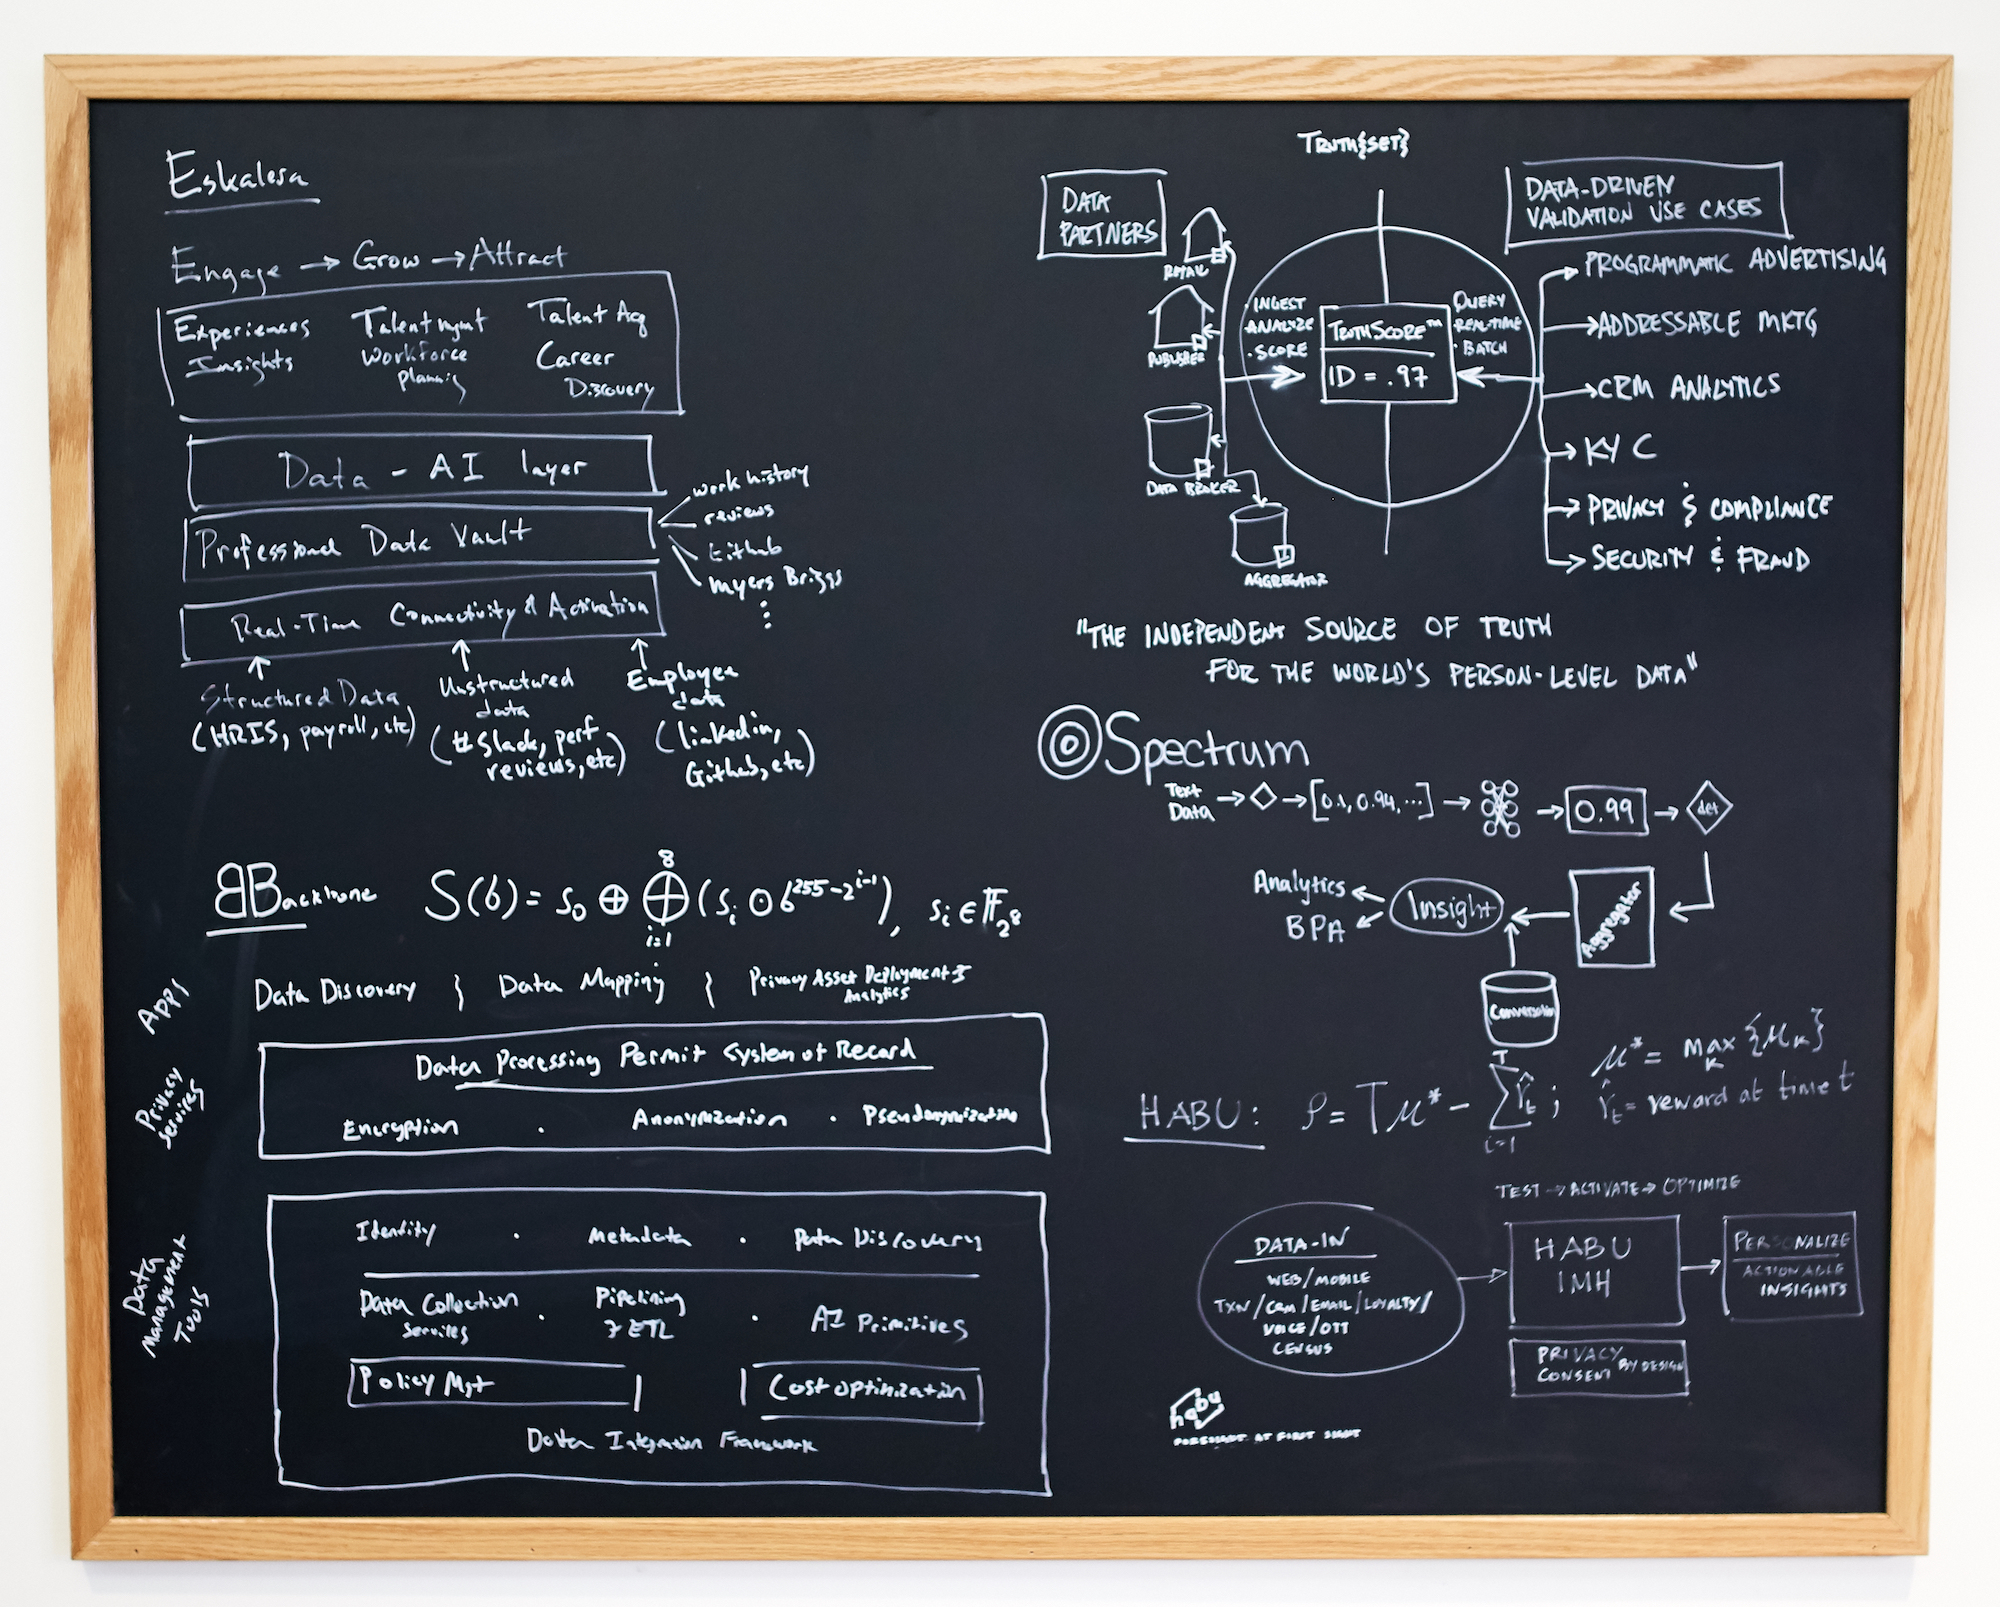 Eskalera
Engage → Grow → Attract
Experiences
Insights
Talent mgmt
Workforce
planning
Talent Acq
Career
Discovery
Data - AI layer
Professional Data Vault
work history
reviews
Github
Myers Briggs
⋮
Real-Time Connectivity & Activation
Structured Data
(HRIS, payroll, etc)
Unstructured
data
(#Slack, perf
reviews, etc)
Employee
data
(linkedin,
Github, etc)
BBackbone
S(b) = s₀ ⊕ ⊕ᵢ₌₁⁸ (sᵢ ⊙ b^(255-2^(i-1))), sᵢ ∈ 𝔽₂⁸
Apps
Data Discovery } Data Mapping } Privacy Asset Deployment &
Analytics
Privacy
Services
Data Processing Permit System of Record
Encryption · Anonymization · Pseudonymization
Data
Management
Tools
Identity · Metadata · Data Discovery
Data Collection
Services
· Pipelining
& ETL
· AI Primitives
Policy Mgt
Cost optimization
Data Integration Framework
TRUTH{SET}
DATA
PARTNERS
RETAIL
PUBLISHER
DATA BROKER
AGGREGATOR
· INGEST
· ANALYZE
· SCORE
TRUTHSCORE™
ID = .97
QUERY
· REAL-TIME
· BATCH
DATA-DRIVEN
VALIDATION USE CASES
PROGRAMMATIC ADVERTISING
ADDRESSABLE MKTG
CRM ANALYTICS
KYC
PRIVACY & COMPLIANCE
SECURITY & FRAUD
"THE INDEPENDENT SOURCE OF TRUTH
FOR THE WORLD'S PERSON-LEVEL DATA"
Spectrum
Text
Data
→ ◇ → [0.1, 0.94, ...] → → 0.99 → det
Aggregator
Insight
Analytics
BPA
Conversation
HABU: ρ = Tμ* - Σᵢ₌₁ᵀ r̂ₜ ;
μ* = max {μₖ}
k
r̂ₜ = reward at time t
TEST → ACTIVATE → OPTIMIZE
DATA-IN
WEB/MOBILE
TXN/CRM/EMAIL/LOYALTY/
VOICE/OTT
CENSUS
HABU
IMH
PERSONALIZE
ACTIONABLE
INSIGHTS
PRIVACY
CONSENT BY DESIGN
habu
AT FIRST